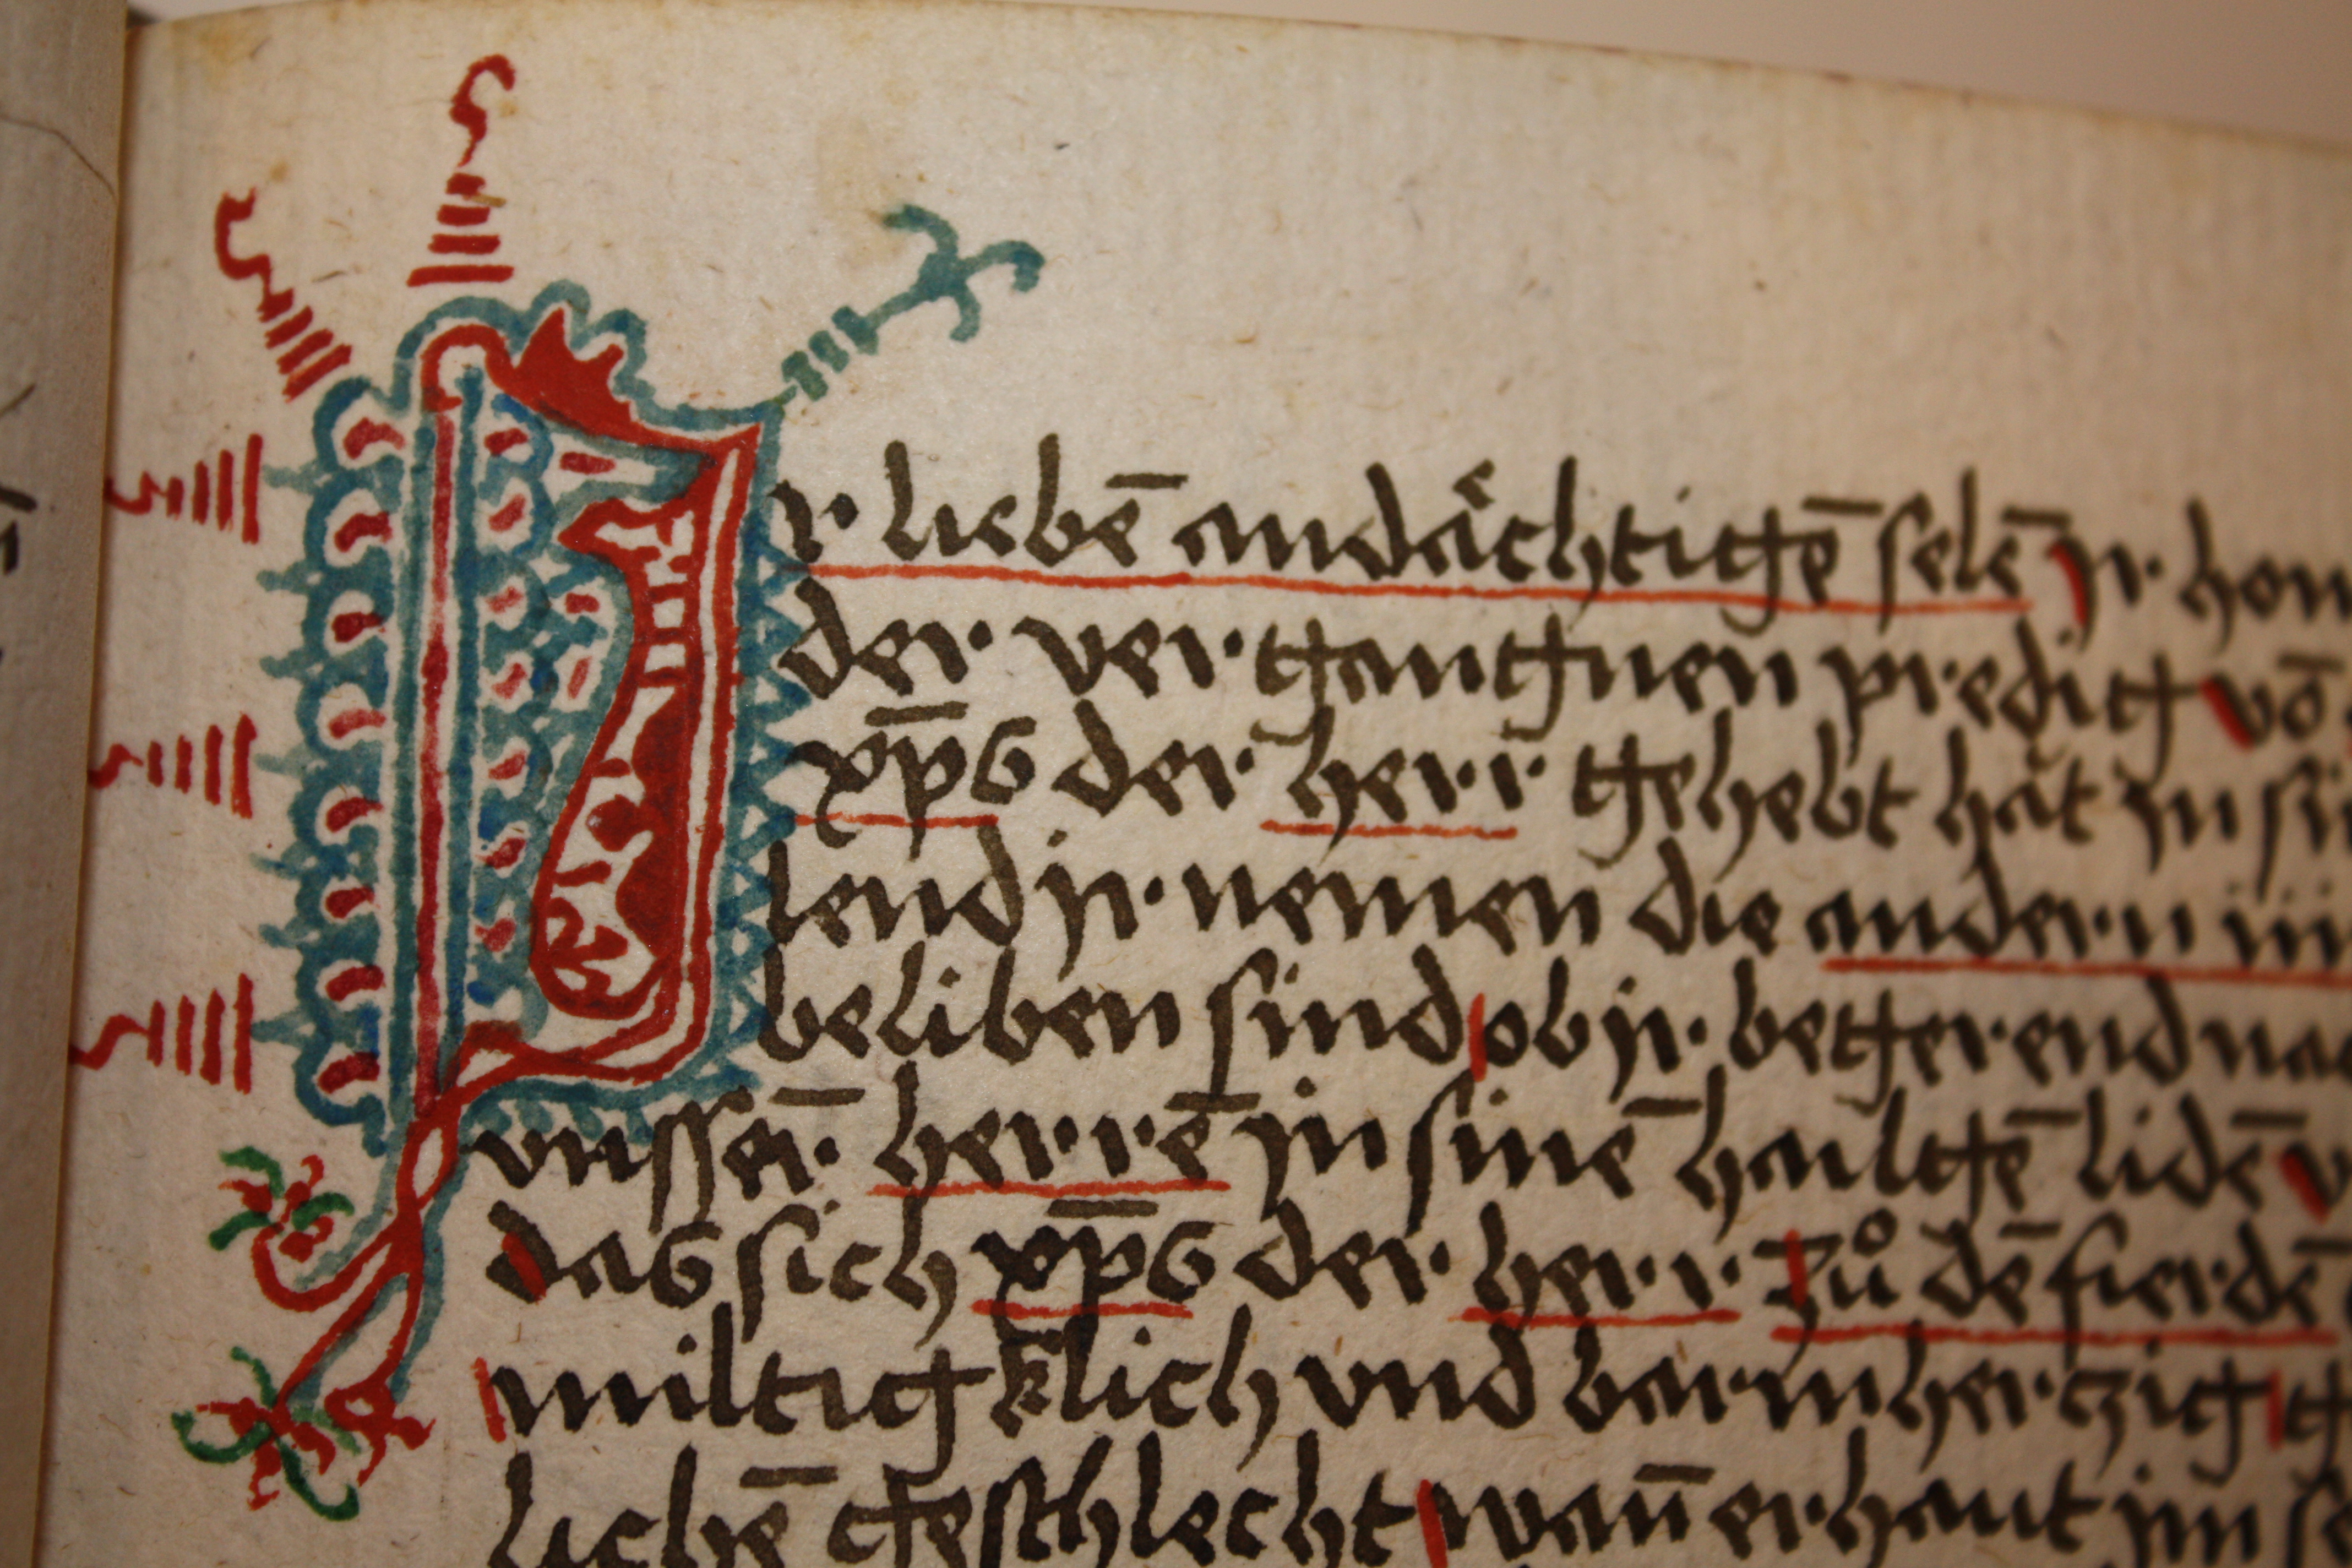 Ir liebē andächtigē selē jr hon
der vergangnen predig vō
xp̄s der herr gehebt hǎt jn sin
lend jr nemen die andern iij
beliben sind ob jr begerend nac
vnsser̄ herrē jn sinē hailgē lidē v
das sich xp̄s der herr zů dē fierdē
miltigklich vnd barmherczig g
lichē geschlecht wan̄ er haut im se